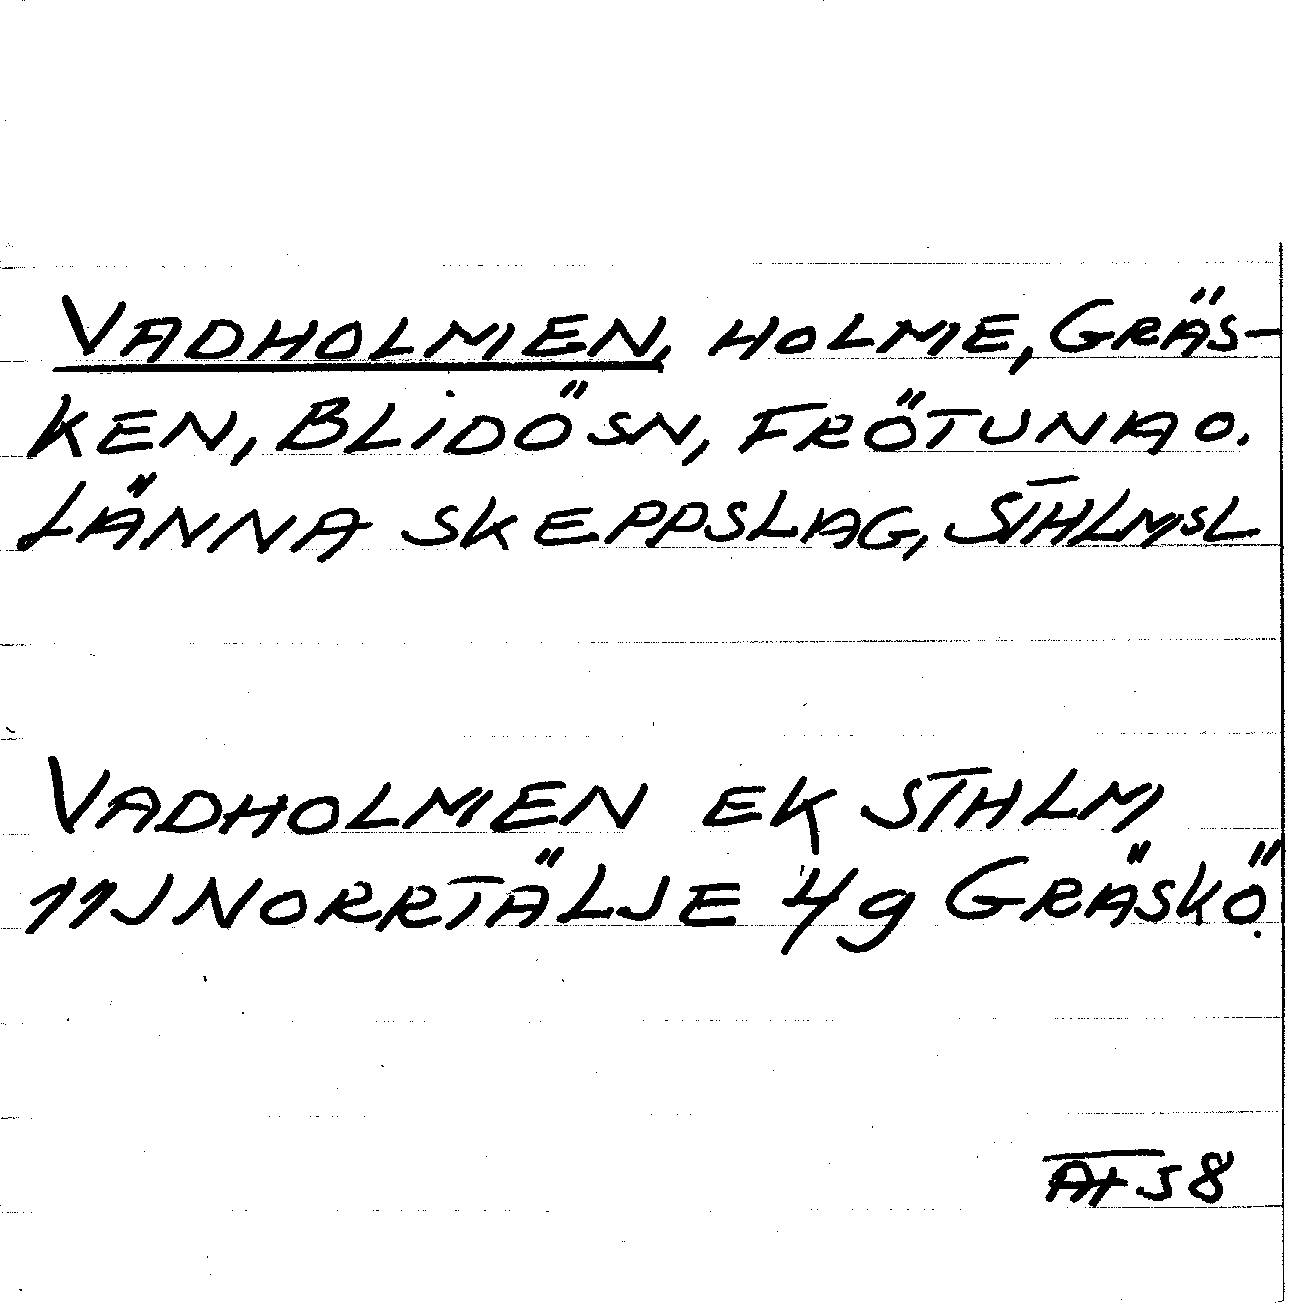 VADHOLMEN, HOLME, GRÄS-
KEN, BLIDÖSN, FRÖTUNA O.
LÄNNA SKEPPSLAG, STHLMSL
VADHOLMEN EK STHLM
11J NORRTÄLJE 4g GRÄSKÖ.